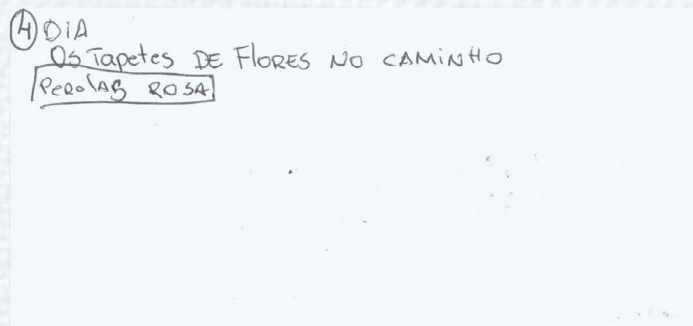 4 DIA
Os Tapetes DE FLORES NO CAMINHO
PEROLAS ROSA